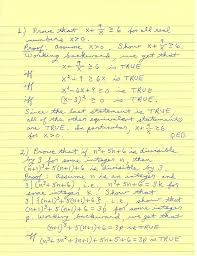 1) Prove that x + 9/x ≥ 6 for all real
numbers x>0.
Proof: Assume x>0. Show x + 9/x ≥ 6
Working backward, we get that
x + 9/x ≥ 6 is TRUE
iff x² + 9 ≥ 6x is TRUE
iff x² - 6x + 9 ≥ 0 is TRUE
iff (x-3)² ≥ 0 is TRUE.
Since the last statement is TRUE
all of the other equivalent statements
are TRUE. In particular, x + 9/x ≥ 6
for x>0. QED
2) Prove that if n² + 5n + 6 is divisible
by 3 for some integer n, then
(n+1)² + 5(n+1) + 6 is divisible by 3.
Proof: Assume n is an integer and
3|(n²+5n+6) i.e. n²+5n+6 = 3k for
some integer k. Show that
3|(n+1)²+5(n+1)+6 i.e. show that
(n+1)²+5(n+1)+6 = 3p for some integer
p. Working backward, we get that
(n+1)²+5(n+1)+6 = 3p is TRUE
iff (n²+2n+1)+5n+5+6 = 3p is TRUE